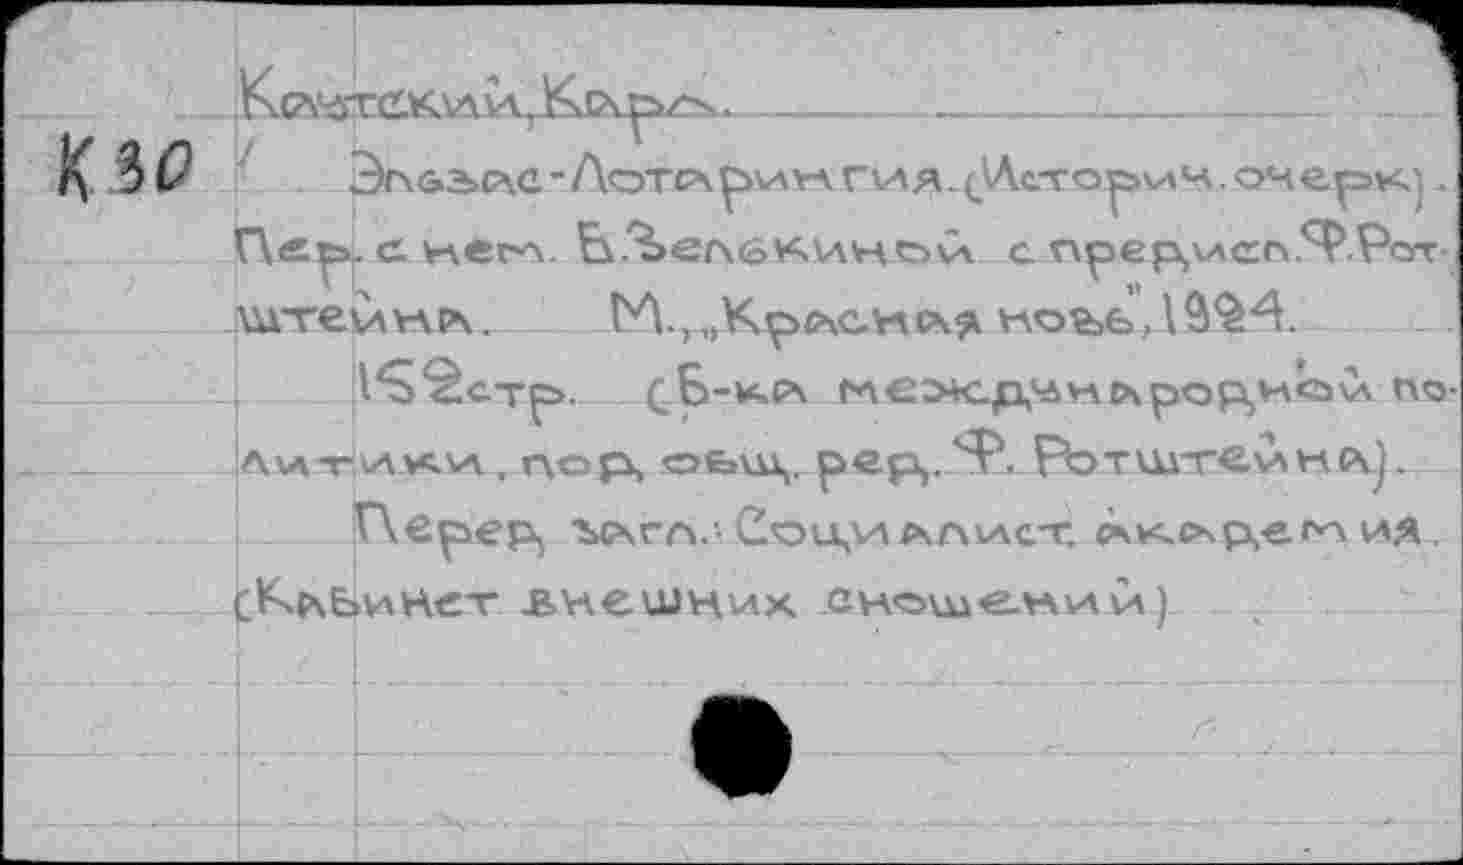 Каутский, Карл.
К30
Эльзас-Лотарингия. (Историч. очерк).
Пер. с нем. В. Зелькиной с предисл. Ф. Рот-
штейна. М., „Красная новь", 1924.
152 стр. (Б-ка международной по-
литики, под общ. ред. Ф. Ротштейна).
Перед загл.: Социалист. академия.
(Кабинет внешних сношений)